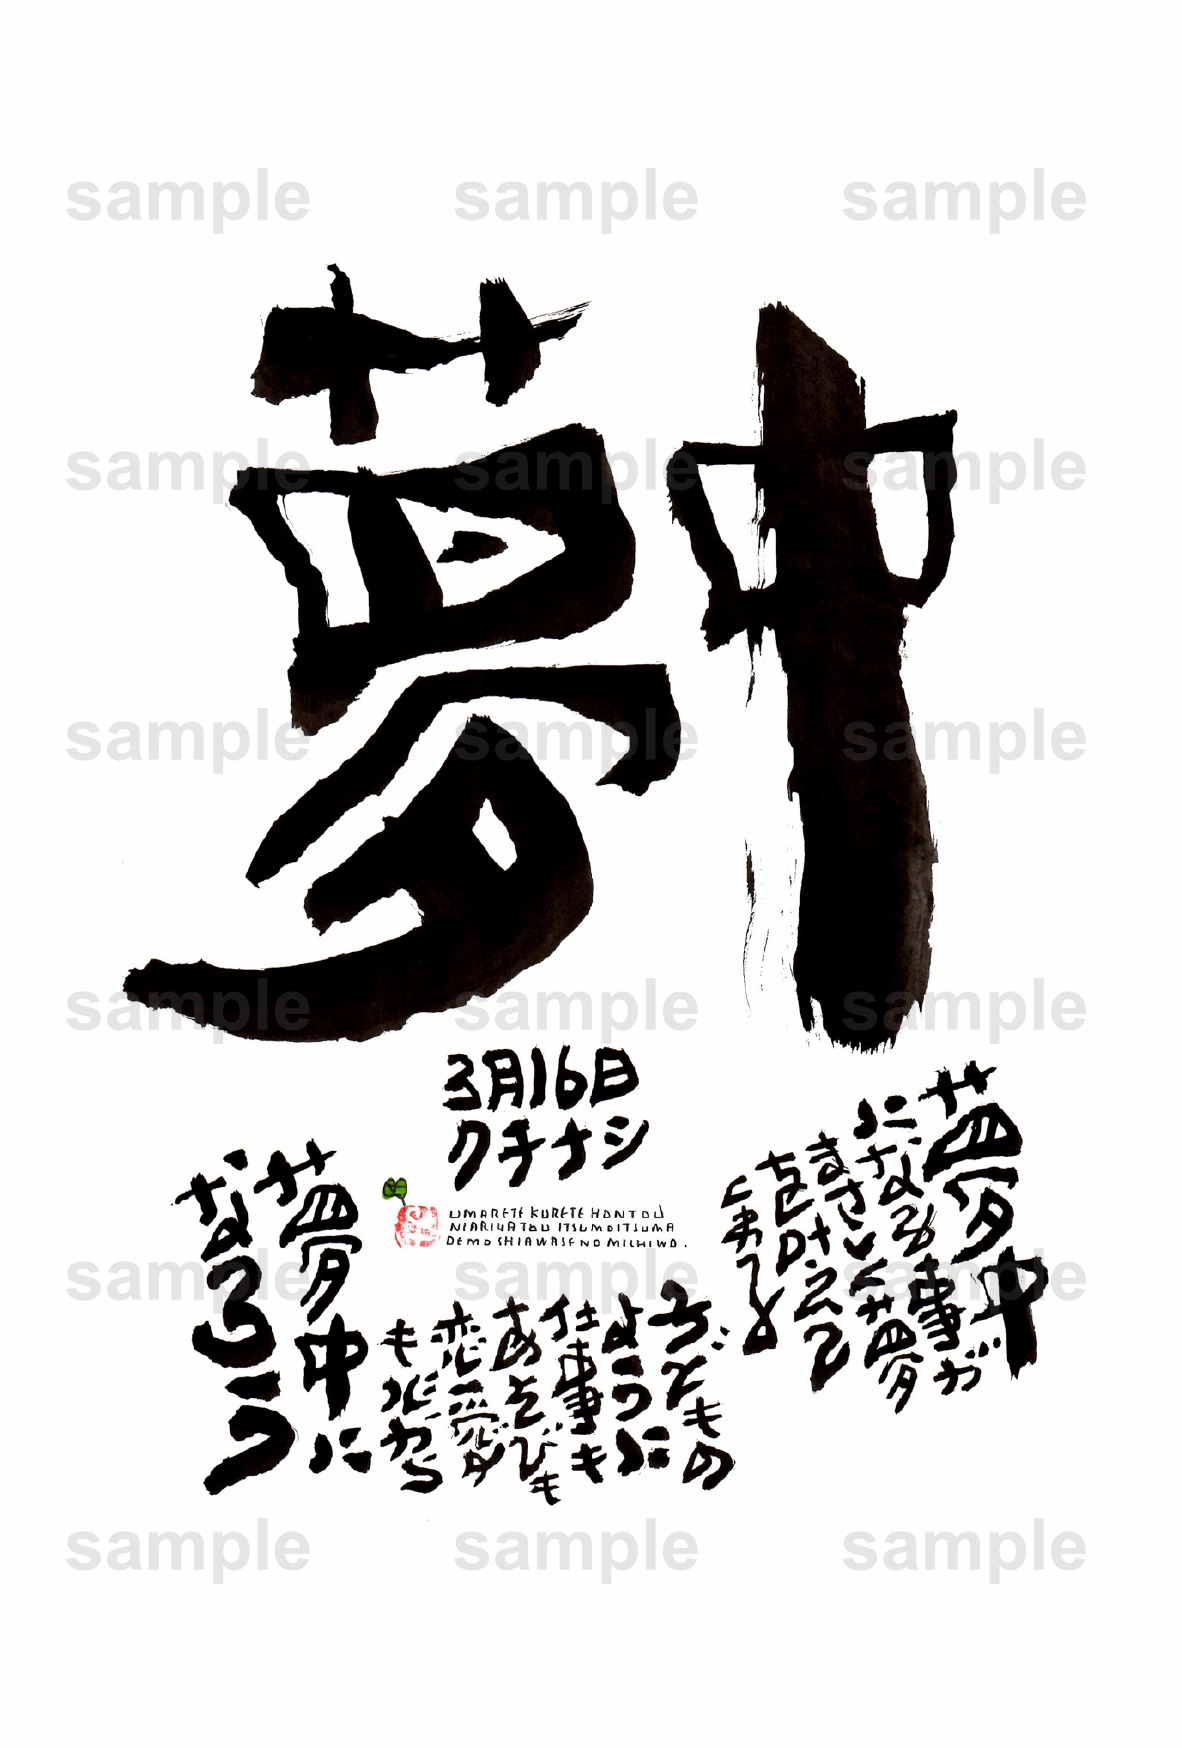 sample sample sample
夢中
sample sample sample
sample sample sample
sample sample sample
3月16日
クチナシ
UMARETE KURETE HONTOU
NIARIGATOU ITSUMOITSUMA
DEMO SHIAWASE NO MICHIWO.
夢中
になる事が
まさしく夢
を叶えて
くれる
子どもの
ように
仕事も
あそびも
恋愛
も心から
夢中に
なろう
sample sample sample
sample sample sample